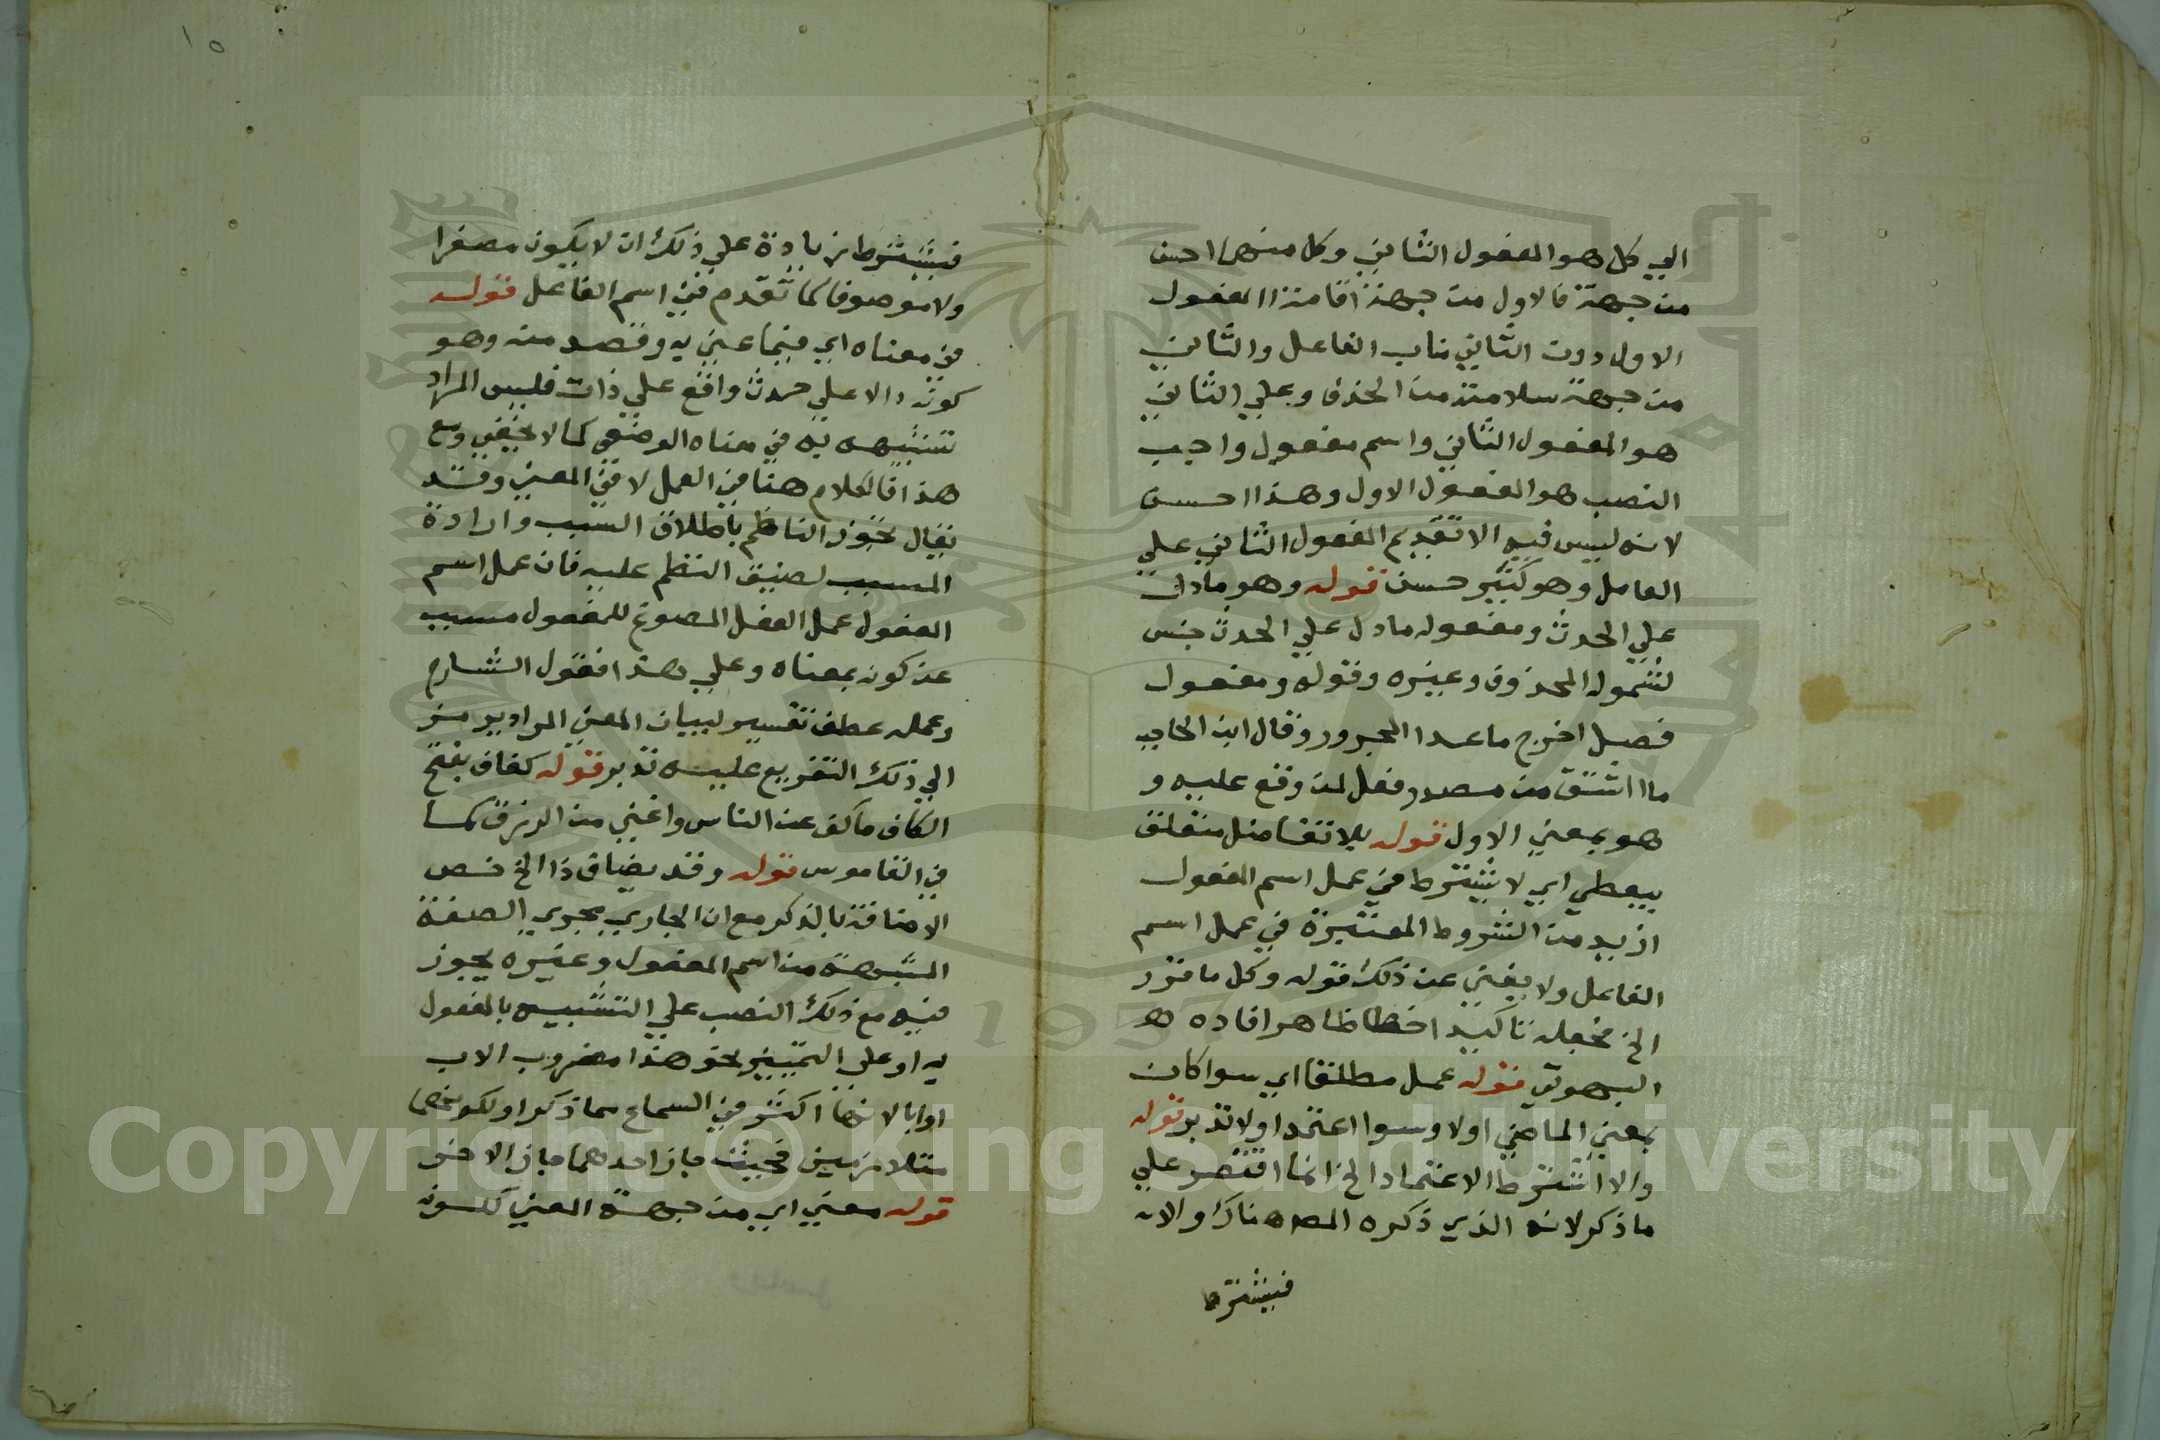 الي كل هو المفعول الثاني وكل منهما احسن
من جهة فالاول من جهة اقامة المفعول
الاول دون الثاني مناب الفاعل والثاني
من جهة سلامته من الحذف وعلي الثاني
هو المفعول الثاني واسم مفعول واجب
النصب هو المفعول الاول وهذا احسن
لانه ليس فيه الا تقديم المفعول الثاني علي
العامل وهو كثير حسن قوله وهو ما دل
علي الحدث ومفعوله ما دل علي الحدث جنس
لشموله المحذوف وغيره وقوله ومفعول
فصل اخرج ما عدا المجرور وقال ابن الحاجب
ما اشتق من مصدر فعل لمن وقع عليه و
هو بمعني الاول قوله بلا تفاضل متعلق
بيعطي اي لا يشترط في عمل اسم المفعول
ازيد من الشروط المعتبرة في عمل اسم
الفاعل ولا يغني عن ذلك قوله وكل ما قرر
الخ فجعله تاكيدا خطا ظاهر افاده
البهوتي قوله عمل مطلقا اي سوا كان
بمعني الماضي اولا وسوا اعتمد اولا تدبر قوله
والا اشترط الاعتماد الخ انما اقتصر علي
ما ذكر لانه الذي ذكره المص هناك والان
فيشترط
١٥
فيشترط زيادة علي ذلك ان لا يكون مصغرا
ولا موصوفا كما تقدم في اسم الفاعل قوله
في معناه اي فيما عني به وقصد منه وهو
كونه دالا علي حدث واقع علي ذات فليس المراد
تشبيهه به في معناه الوضعي كما لا يخفي ومع
هذا فالكلام هنا في العمل لا في المعني وقد
يقال تجوز الناظم باطلاق السبب وارادة
المسبب لضيق النظم عليه فان عمل اسم
المفعول عمل الفعل المصوغ للمفعول مسبب
عن كونه بمعناه وعلي هذا فقول الشارح
وعمله عطف تفسير لبيان المعني المراد يرمز
الي ذلك التفريع عليه تدبر قوله كفاف بفتح
الكاف ما كف عن الناس واغني من الرزق كما
في القاموس قوله وقد يضاف ذا الخ خص
الاضافة بالذكر مع ان الجاري مجري الصفة
المشبهة من اسم المفعول وغيره يجوز
فيه مع ذلك النصب علي التشبيه بالمفعول
به او علي التمييز نحو هذا مضروب الاب
او ابا لانها اكثر في السماع مما ذكر او لكونهما
متلازمين فحيث جاز احدهما جاز الاخر
قوله معني اي من جهة المعني لكونه